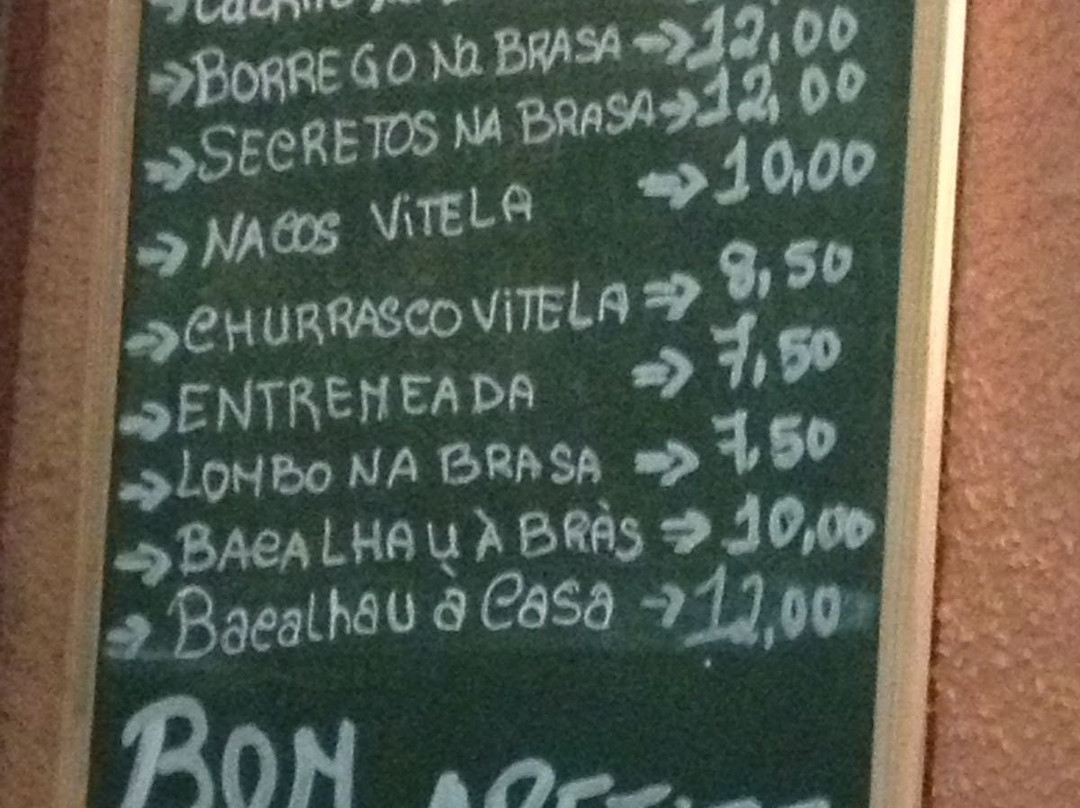 →BORREGO Na BRASA →12,00
→SECRETOS NA BRASA→12,00
→ NACOS ViTELA → 10,00
→CHURRASCO ViTELA → 8,50
→ENTREMEADA → 7,50
→LOMBO NA BRASA → 7,50
→BACALHAU À BRÀS → 10,00
→ Bacalhau à Casa →12,00
BOM